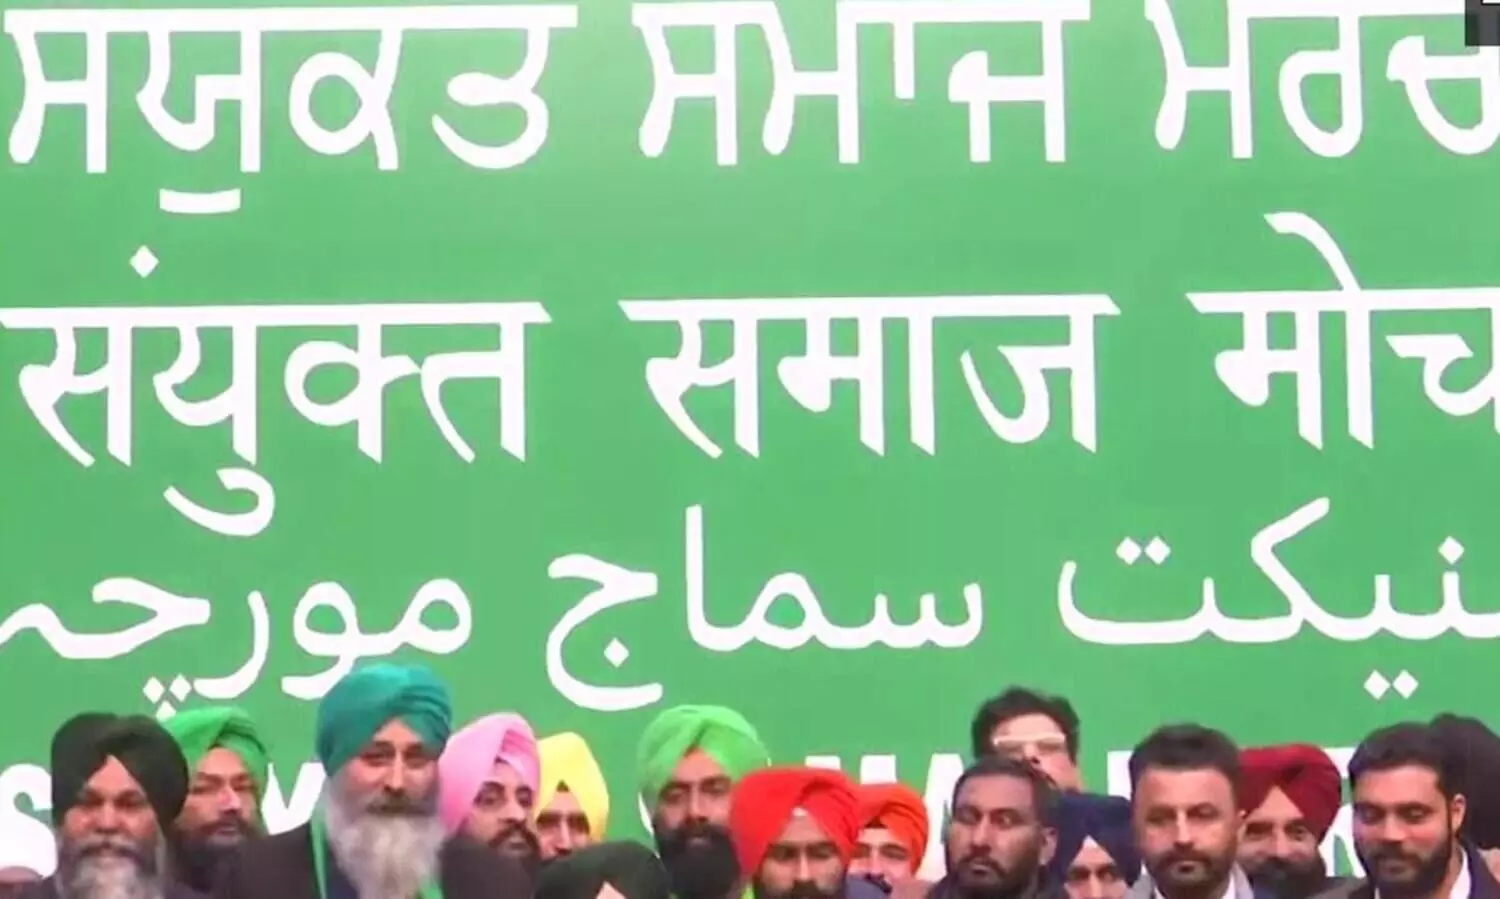 ਸਯੁਕਤ ਸਮਾਜ ਮਰਚ
संयुक्त समाज मोच
نیکت سماج مورچہ